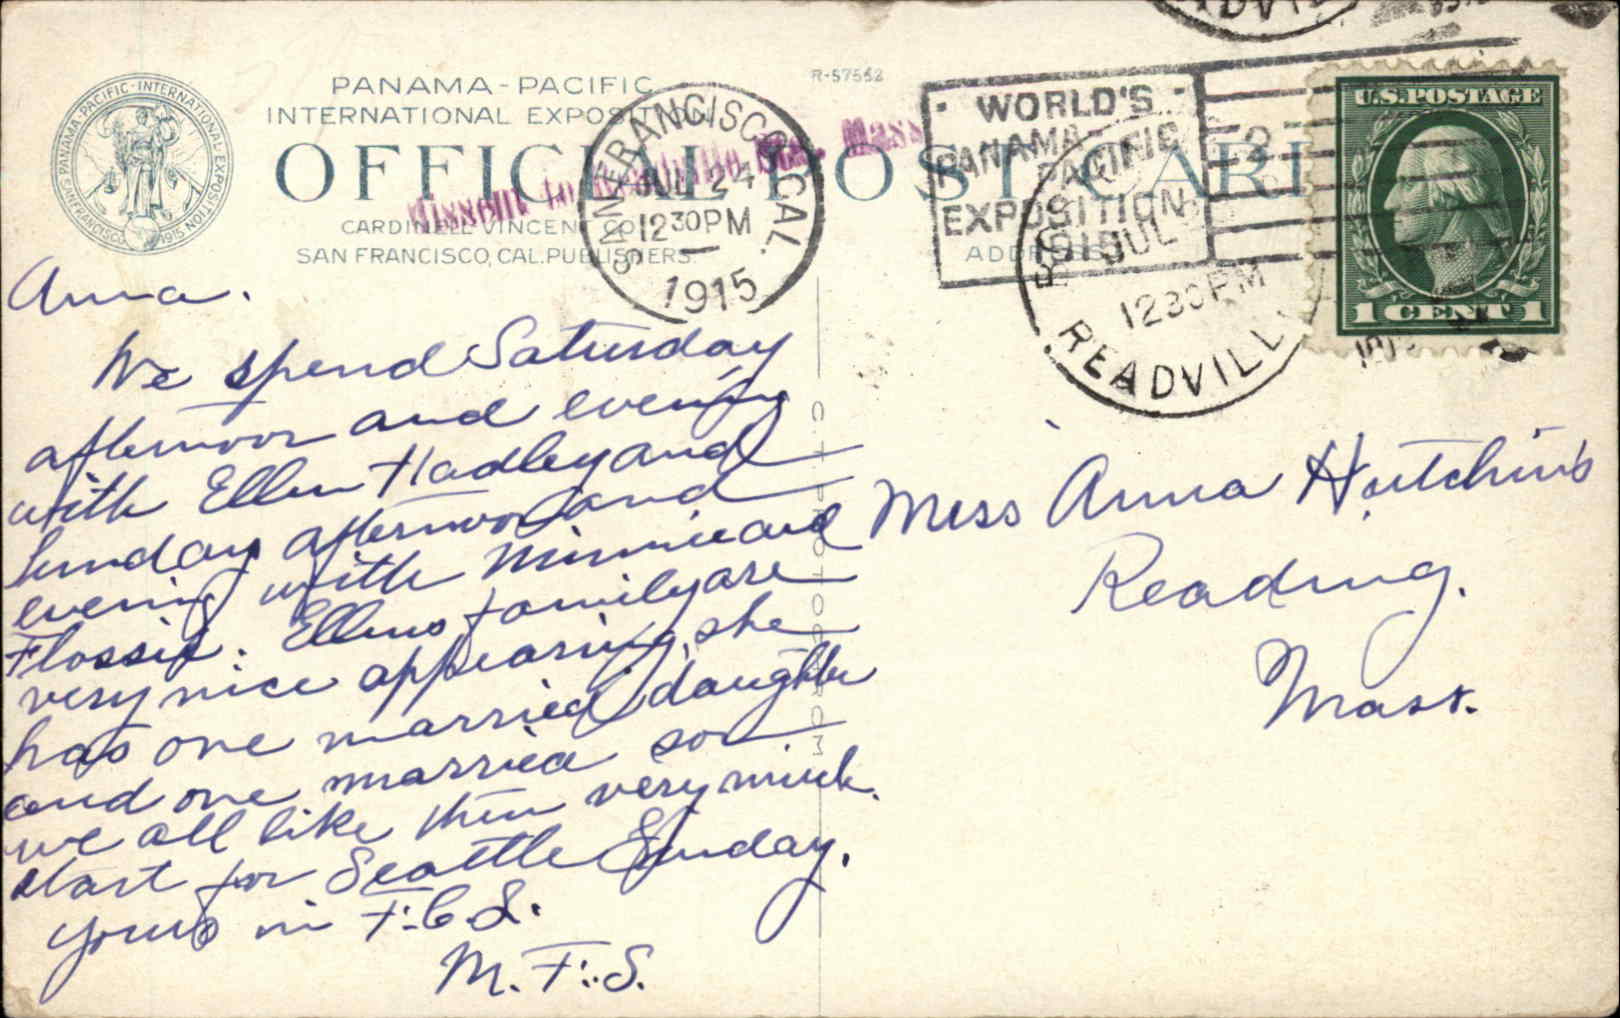 PANAMA-PACIFIC
INTERNATIONAL EXPOSITION
OFFICIAL POST CARD
CARDINELL VINCENT CO.
SAN FRANCISCO, CAL. PUBLISHERS.
PANAMA-PACIFIC-INTERNATIONAL EXPOSITION
SAN FRANCISCO 1915
R-57552
ADDRESS
Missent to Readville Sta., Mass
SAN FRANCISCO, CAL.
JUL 24
12 30 PM
1915
WORLD'S
PANAMA-
PACIFIC
EXPOSITION
1915
JUL
12 30 PM
READVILL
U.S. POSTAGE
1 CENT 1
Anna.
We spend Saturday
afternoon and evening
with Ellen Hadley and
Sunday afternoon and
evening with Minnie and
Flossie. Ellens family are
very nice appearing, she
has one married daughter
and one married son
we all like them very much.
start for Seattle Sunday.
Yours in F.C.S.
M.F.S.
Miss Anna Hutchins
Reading.
Mass.